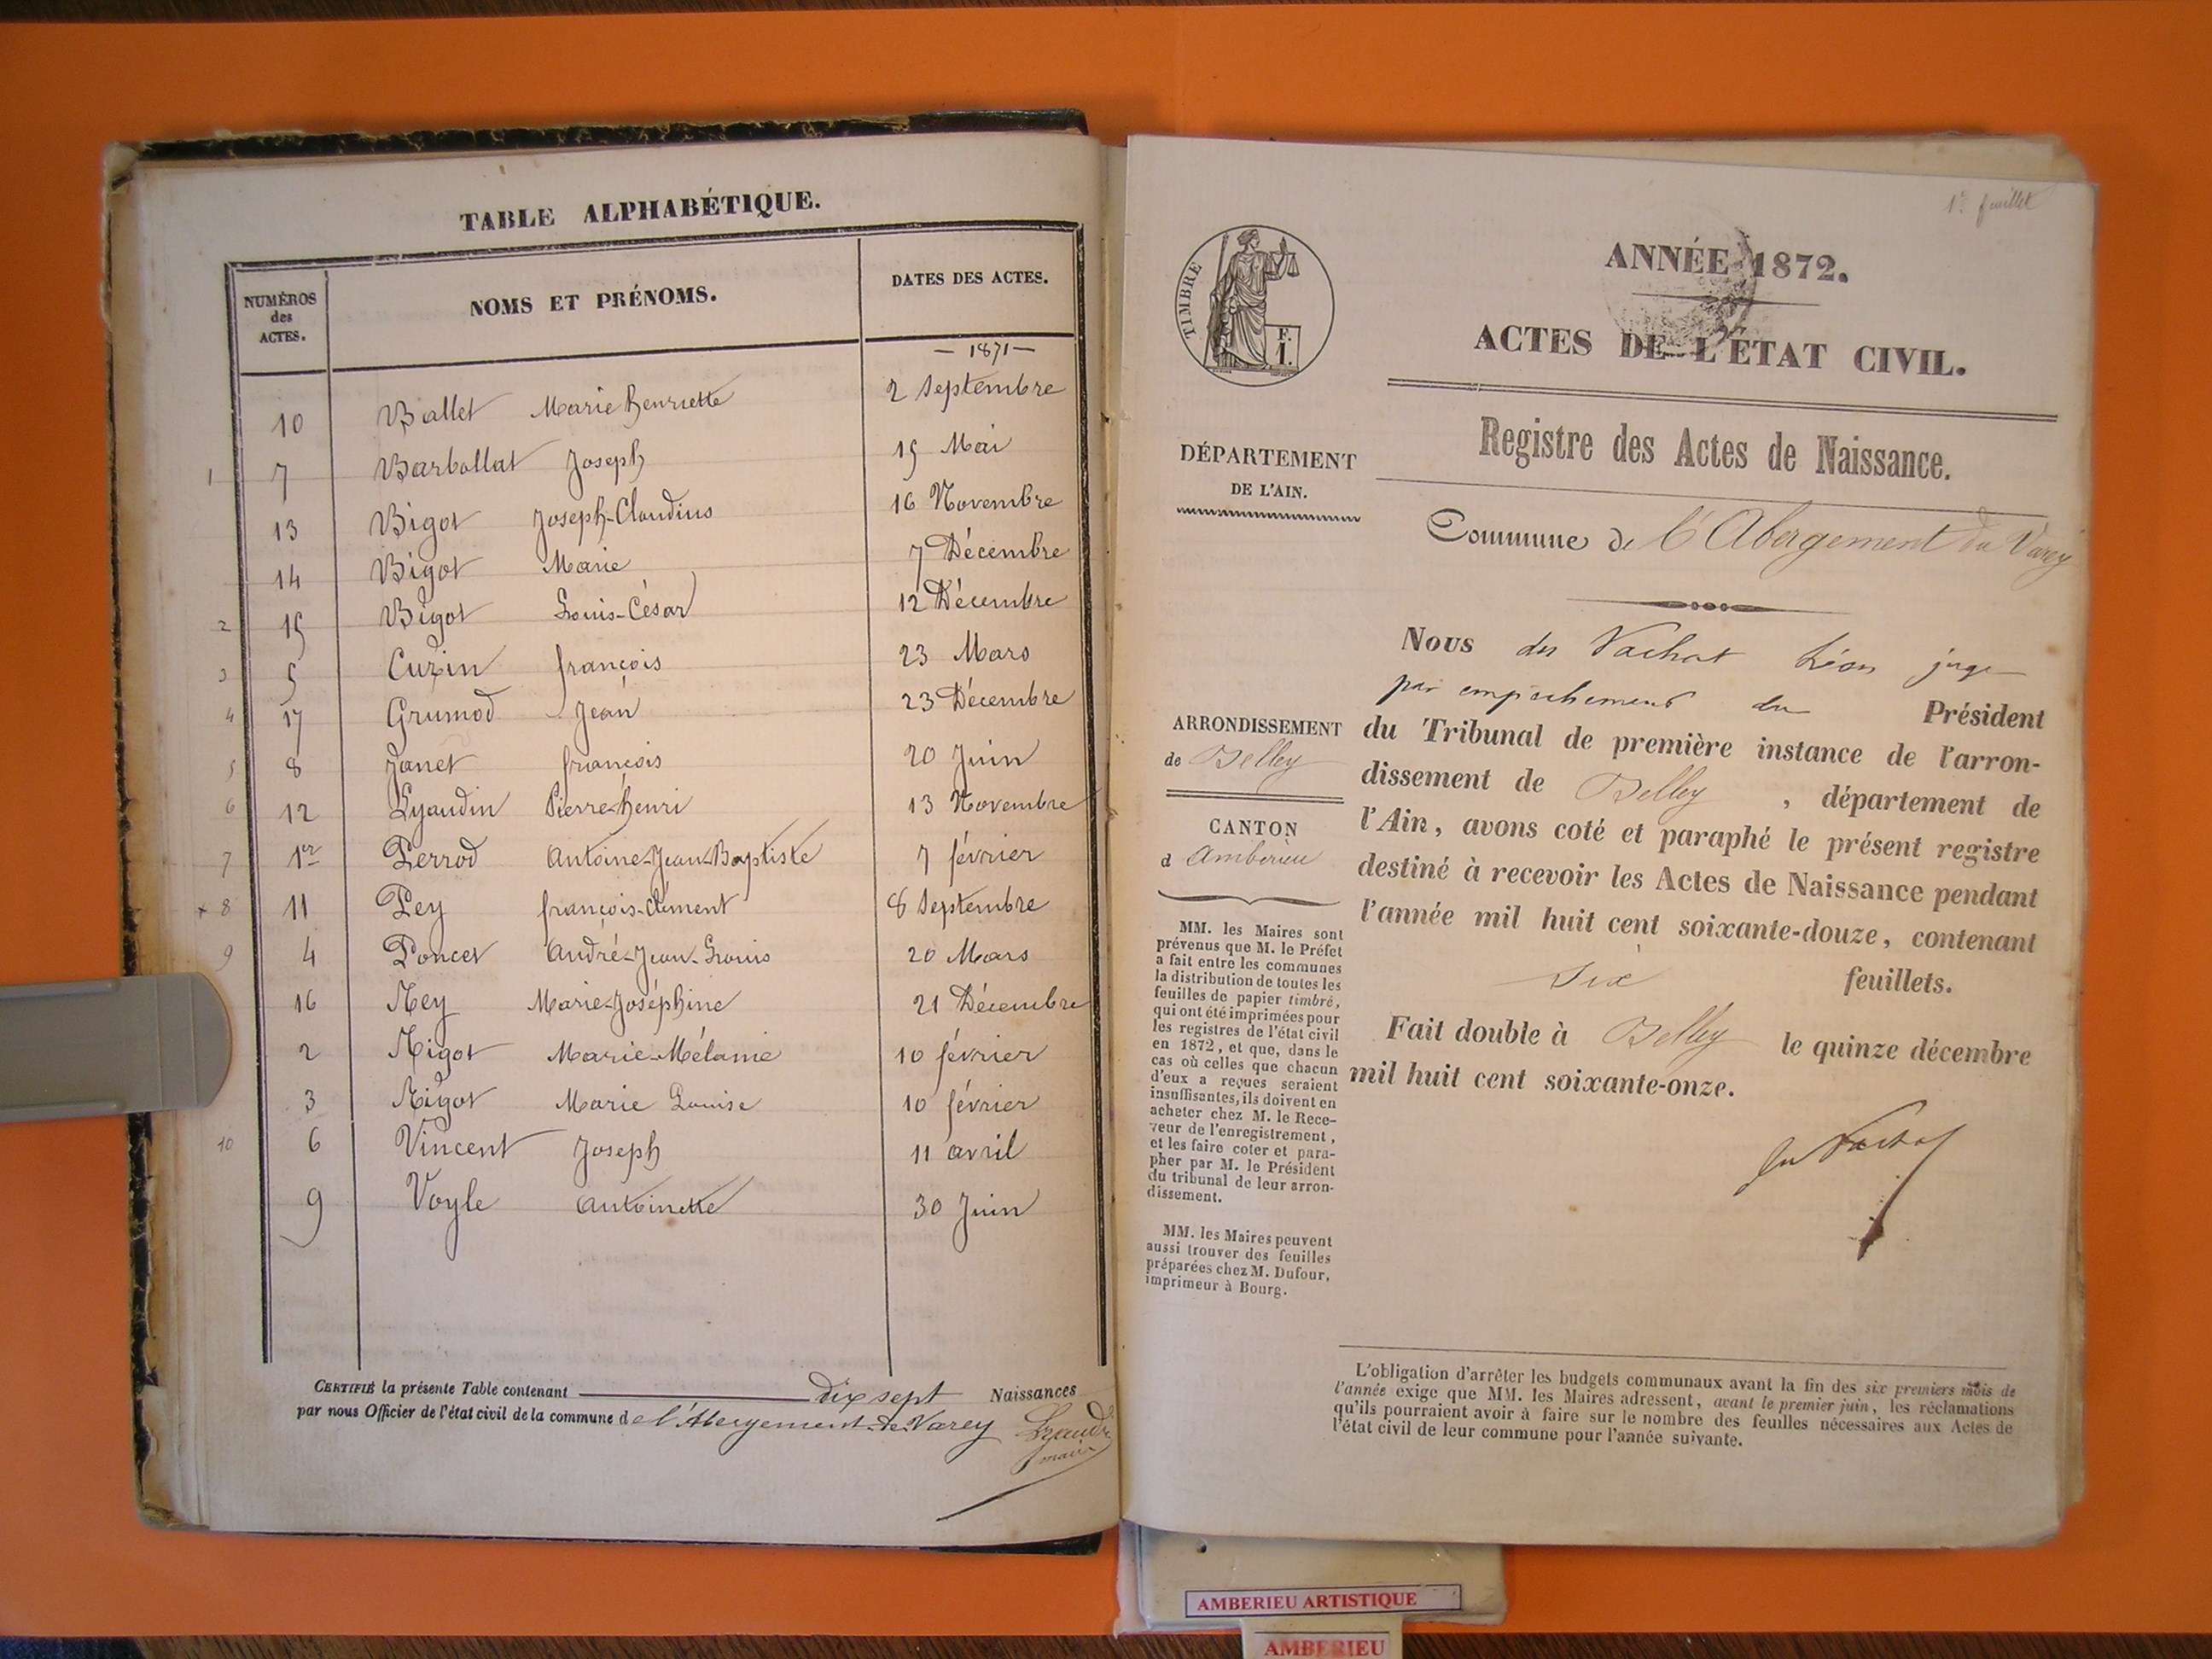 TABLE ALPHABÉTIQUE.
NUMÉROS des ACTES. NOMS ET PRÉNOMS. DATES DES ACTES.
— 1871 —
10 Ballet Marie henriette 2 Septembre
1 7 Barbollat Joseph 15 Mai
13 Bigot Joseph-Claudius 16 Novembre
14 Bigot Marie 7 Décembre
2 15 Bigot Louis-César 12 Décembre
3 5 Cuzin françois 23 Mars
4 17 Grumod Jean 23 Décembre
5 8 Janet françois 20 Juin
6 12 Lyaudin Pierre-henri 13 Novembre
7 1er Perrod Antoine-Jean-Baptiste 7 février
+ 8 11 Pey françois-Clément 8 Septembre
9 4 Poncet André-Jean-Louis 20 Mars
16 Rey Marie-Joséphine 21 Décembre
2 Rigot Marie-Mélanie 10 février
3 Rigot Marie Louise 10 février
10 6 Vincent Joseph 11 avril
9 Voyle Antoinette 30 Juin
CERTIFIÉ la présente Table contenant dix sept Naissances
par nous Officier de l'état civil de la commune de l'Abergement-de-Varey
maire
1er feuillet
TIMBRE
F.
1.
ANNÉE 1872.
ACTES DE L'ÉTAT CIVIL.
Registre des Actes de Naissance.
DÉPARTEMENT
DE L'AIN.
Commune de l'Abergement de Varey
ARRONDISSEMENT
de Belley
CANTON
d Ambérieu
MM. les Maires sont
prévenus que M. le Préfet
a fait entre les communes
la distribution de toutes les
feuilles de papier timbré,
qui ont été imprimées pour
les registres de l'état civil
en 1872, et que, dans le
cas où celles que chacun
d'eux a reçues seraient
insuffisantes, ils doivent en
acheter chez M. le Rece-
veur de l'enregistrement,
et les faire coter et para-
pher par M. le Président
du tribunal de leur arron-
dissement.
MM. les Maires peuvent
aussi trouver des feuilles
préparées chez M. Dufour,
imprimeur à Bourg.
Nous du Vachat Léon juge
par empêchement du Président
du Tribunal de première instance de l'arron-
dissement de Belley, département de
l'Ain, avons coté et paraphé le présent registre
destiné à recevoir les Actes de Naissance pendant
l'année mil huit cent soixante-douze, contenant
Six feuillets.
Fait double à Belley le quinze décembre
mil huit cent soixante-onze.
du Vachat
L'obligation d'arrêter les budgets communaux avant la fin des six premiers mois de
l'année exige que MM. les Maires adressent, avant le premier juin, les réclamations
qu'ils pourraient avoir à faire sur le nombre des feuilles nécessaires aux Actes de
l'état civil de leur commune pour l'année suivante.
AMBERIEU ARTISTIQUE
AMBERIEU